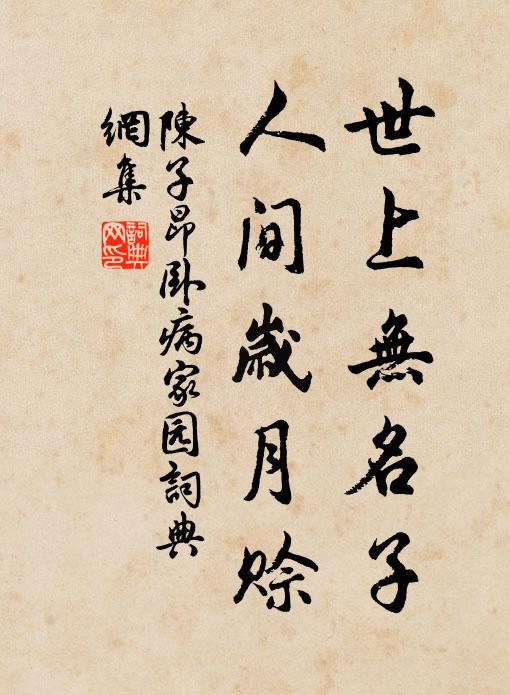 世上無名子
人间歲月赊
陳子昂卧病家园詞典
網集
詞典网印